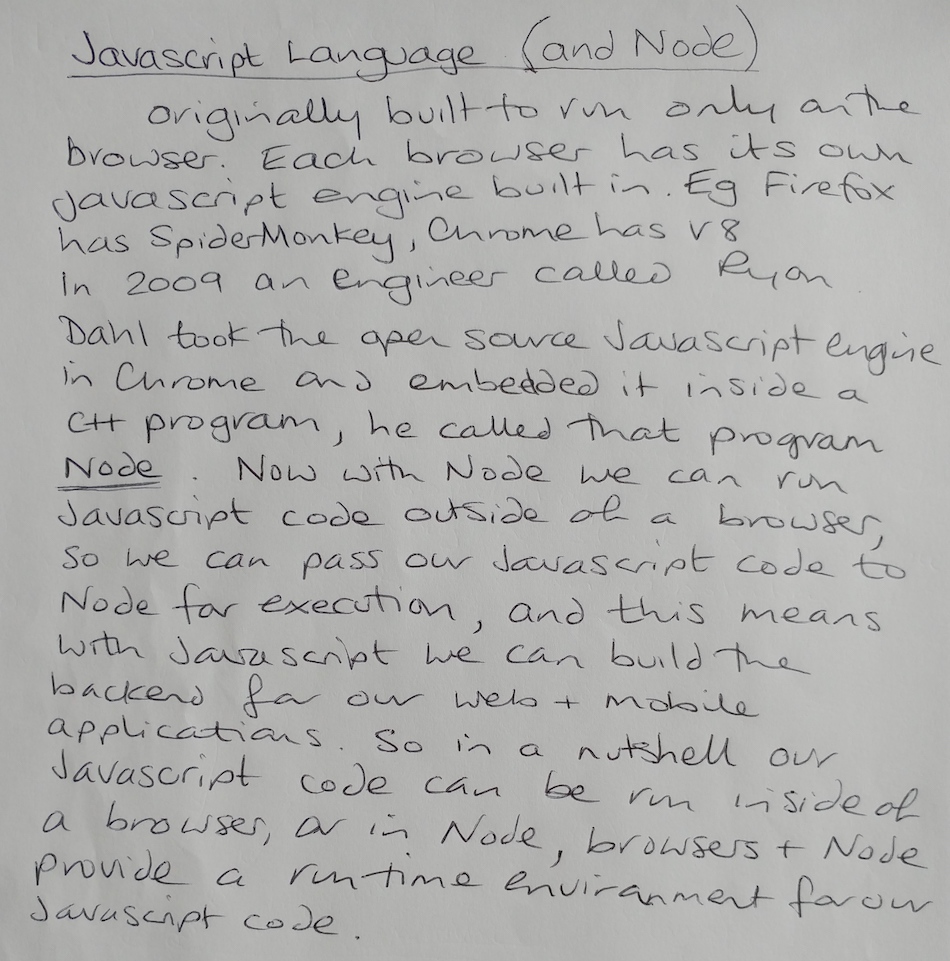 Javascript Language (and Node)
originally built to run only on the
browser. Each browser has its own
javascript engine built in. Eg Firefox
has SpiderMonkey, Chrome has V8
In 2009 an engineer called Ryan
Dahl took the open source Javascript engine
in Chrome and embedded it inside a
C++ program, he called that program
Node. Now with Node we can run
Javascript code outside of a browser,
so we can pass our Javascript code to
Node for execution, and this means
with Javascript we can build the
backend for our web + mobile
applications. So in a nutshell our
Javascript code can be run inside of
a browser, or in Node, browsers + Node
provide a runtime environment for our
Javascript code.